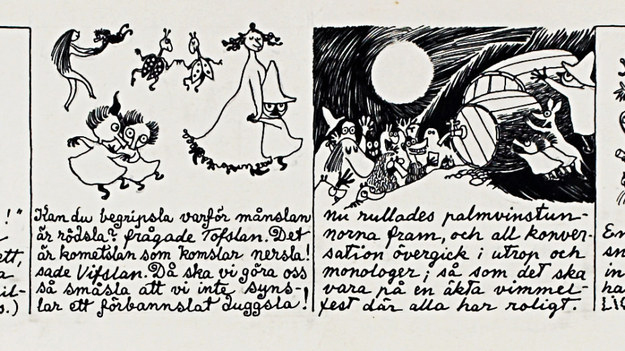 !"
ett,
a
il-
s.)
Kan du begripsla varför månslan
är rödsla? frågade Tofslan. Det
är kometslan som komslar nersla!
sade Vifslan. Då ska vi göra oss
så småsla att vi inte syns-
lar ett förbannslat duggsla!
nu rullades palmvinstun-
norna fram, och all konver-
sation övergick i utrop och
monologer; så som det ska
vara på en äkta vimmel-
fest där alla har roligt.
En
sn
in
ha